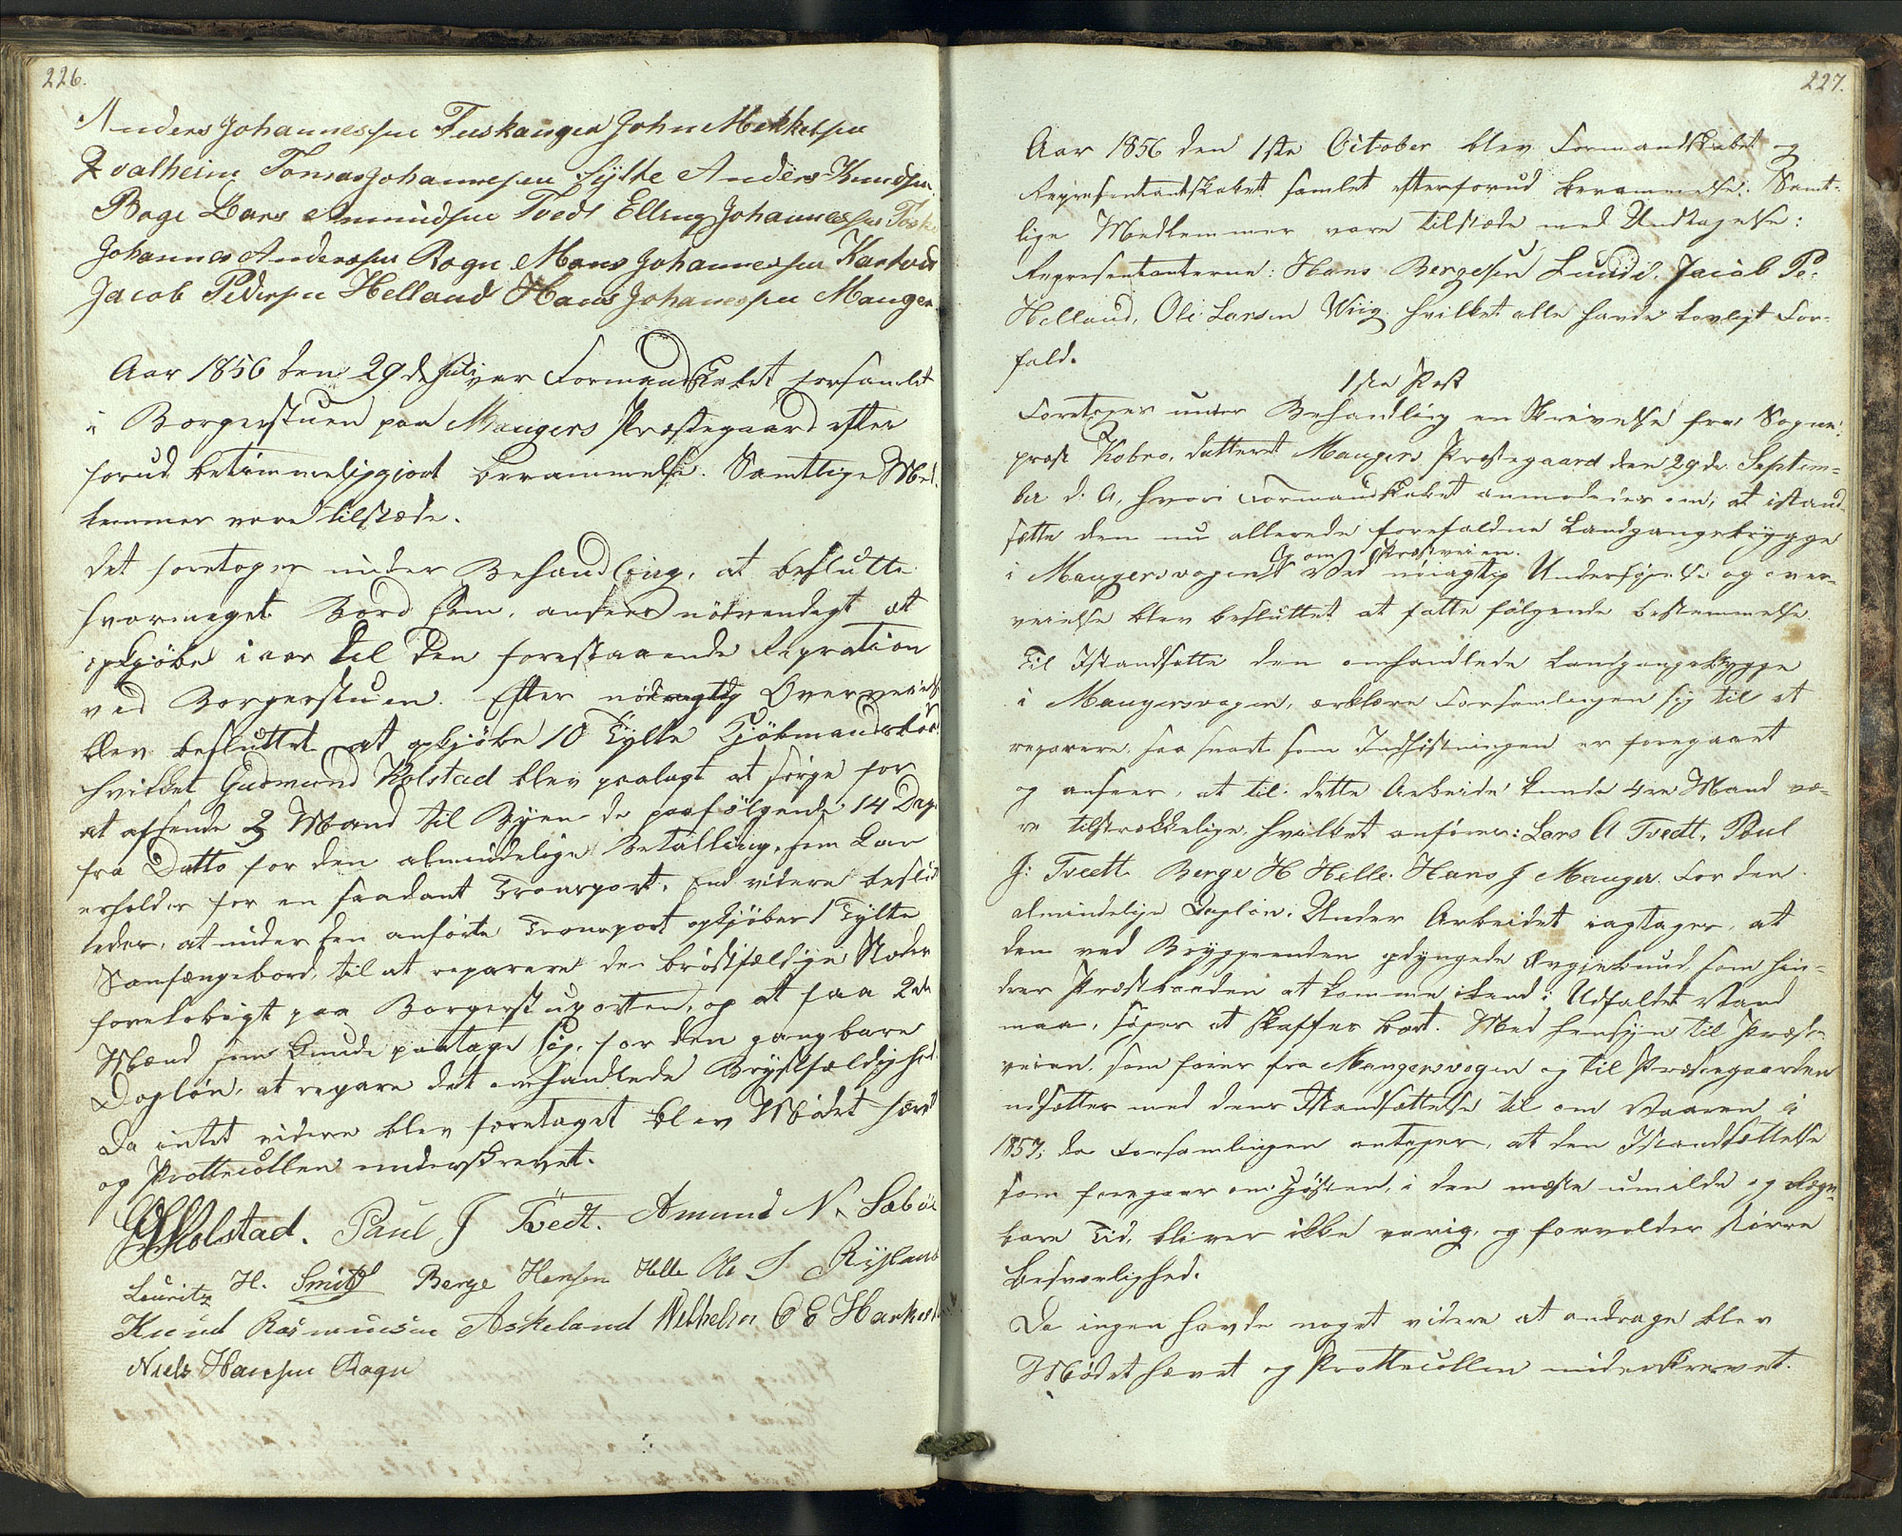 226.
Anders Johannessen Fuskanger John Mikkelsen
Qvalheim Tomas Johannesen Sylte Anders Knudsen
Boge Lars Amundsen Tvedt Elling Johannessen Tosk
Johannes Anderssen Rogn Mons Johannessen Kartvedt
Jacob Pedersen Helland Hans Johannessen Manger
Aar 1856 den 29de Juli var Formandskabet forsamlet
i Borgerstuen paa Mangers Præstegaard efter
forud betimmeligjort berammelse. Samtlige Med-
lemmer vare tilstæde.
Det foretoges under Behandling, at beslutte
hvormeget Bord som ansees nødvendigt at
opkjøbe i aar til den forestaaende Repration
ved Borgerstuen. Efter nøiagtig Overveielse
blev besluttet at opkjøbe 10 Tylte Kjøbmandsbord
hvilket Gudmund Kolstad blev paalagt at sørge for
at afsende 2 Mand til Byen de paafølgende 14 Dage
fra Datto for den almindelige Betalling, som Lar
erholder for en saadant Transport. End videre beslut-
tedes, at under den anførte Transport opkjøbes 1 Tylte
Sonfængebord, til at reparere de brøstfældige Stæder
foreløbigt paa Borgerstuporten, og at faa 2de
Mænd som kunde paatage sig, for den gangbare
Dagløn, at repare det omhandlede Brøstfældighed
Da intet videre blev foretaget blev Mødet hævet
og Prottecollen underskrevet.
GKolstad. Paul J Tvedt. Amund N. Sæbøe
Lauritz H. Smith Berge Hansen Helle Ole S Rysland
Knud Rasmussen Askeland Wilhelm O E Hanko
Niels Hansen Rogn
227.
Aar 1856 den 1ste October blev Formandskabet og
Representantskabet samlet efter forud berammelse. Samt-
lige Medlemmer vare tilstæde med Undtagelse:
Representanterne: Hans Bergesen Lunde. Jacob Pe:
Helland, Ole Larsen Wiig. hvilket alle havde lovligt For-
fald.
1ste Post
Foretoges under Behandling en Skrivelse fra Sogne-
præst Kobro, datteret Mangers Præstegaard den 29de Septem-
ber d. A. hvori Formandskabet anmodedes om, at istand-
sætte den nu allerede forefaldne Landgangsbrygge
Og om Præstveien.
i Mangersvogen. Ved nøiagtig Undersøgelse og over-
veielse blev besluttet at fatte følgende bestemmelse
Til Istandsætte den omhandlede Landgangsbrygge
i Mangersvogen, erklære Forsamlingen sig til at
reparere saa snart som Indhøstningen er foregaaet
og ansees, at til dette Arbeide kunde 4re Mand væ-
re tilstrækkelige, hvilket anføres: Lars A Tvedt, Poul
J: Tvedt. Berge H Helle. Hans J Manger. For den
almindelige Dagløn. Under Arbeidet iagtages, at
den ved Bryggeenden opdyngede som hin-
drer Præstbaaden at komme iland i Udfaldet Vand
maa, søges at skaffes bort. Med Hensyn til Præst-
veien, som fører fra Mangersvogen og til Præstegaarden
udsættes med dens Istandsættelse til om Vaaren i
1857, da Forsamlingen antager, at den Istandsættelse
som foregaar om Høsten, i den mæste umilde og Regn-
bare Tid, bliver ikke varig, og forvolder større
besværlighed.
Da ingen havde noget videre at andrage blev
Mødet hævet og Prottecollen underskrevet.